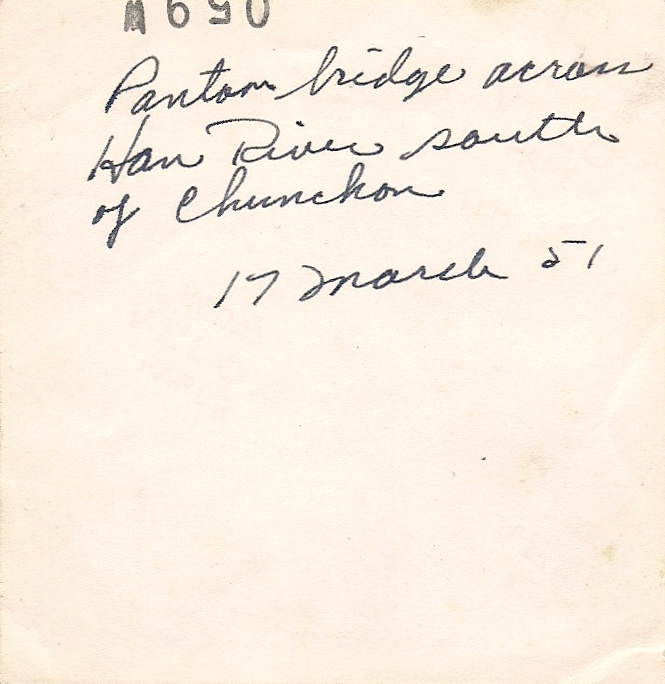 Pantom bridge across
Han River south
of Chunchon
17 March 51